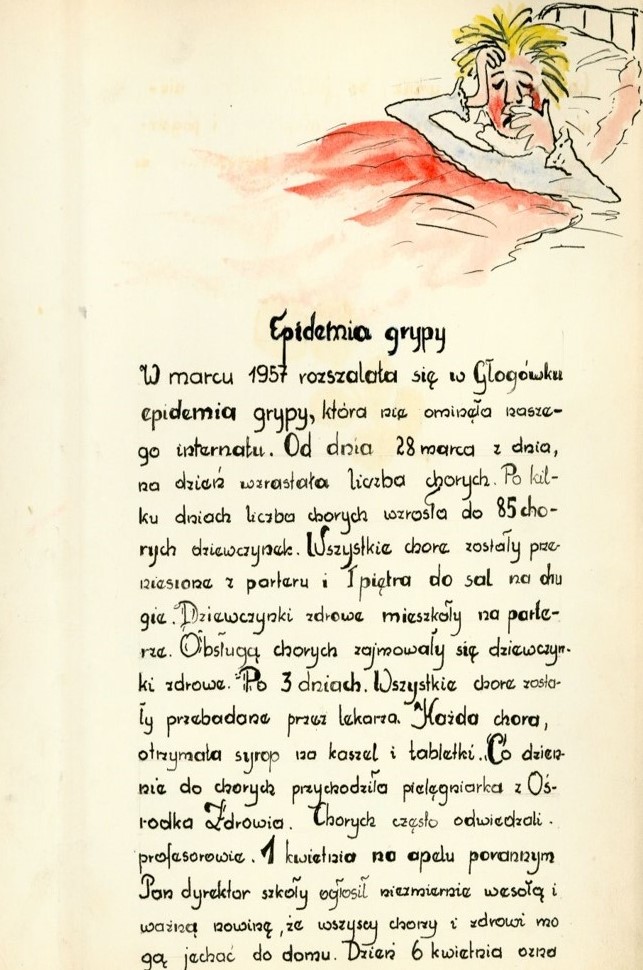 Epidemia grypy
W marcu 1957 rozszalała się w Głogówku
epidemia grypy, która nie ominęła nasze-
go internatu. Od dnia 28 marca z dnia,
na dzień wzrastała liczba chorych. Po kil-
ku dniach liczba chorych wzrosła do 85 cho-
rych dziewczynek. Wszystkie chore zostały prze-
niesione z parteru i I piętra do sal na dru
gie. Dziewczynki zdrowe mieszkały na parte-
rze. Obsługą chorych zajmowały się dziewczyn-
ki zdrowe. Po 3 dniach. Wszystkie chore zosta-
ły przebadane przez lekarza. Każda chora,
otrzymała syrop na kaszel i tabletki. Co dzien-
nie do chorych przychodziła pielęgniarka z Oś-
rodka Zdrowia. Chorych często odwiedzali.
profesorowie. 1 kwietnia na apelu porannym
Pan dyrektor szkoły ogłosił niezmiernie wesołą i
ważną nowinę, że wszyscy chorzy i zdrowi mo
gą jechać do domu. Dzień 6 kwietnia ozna